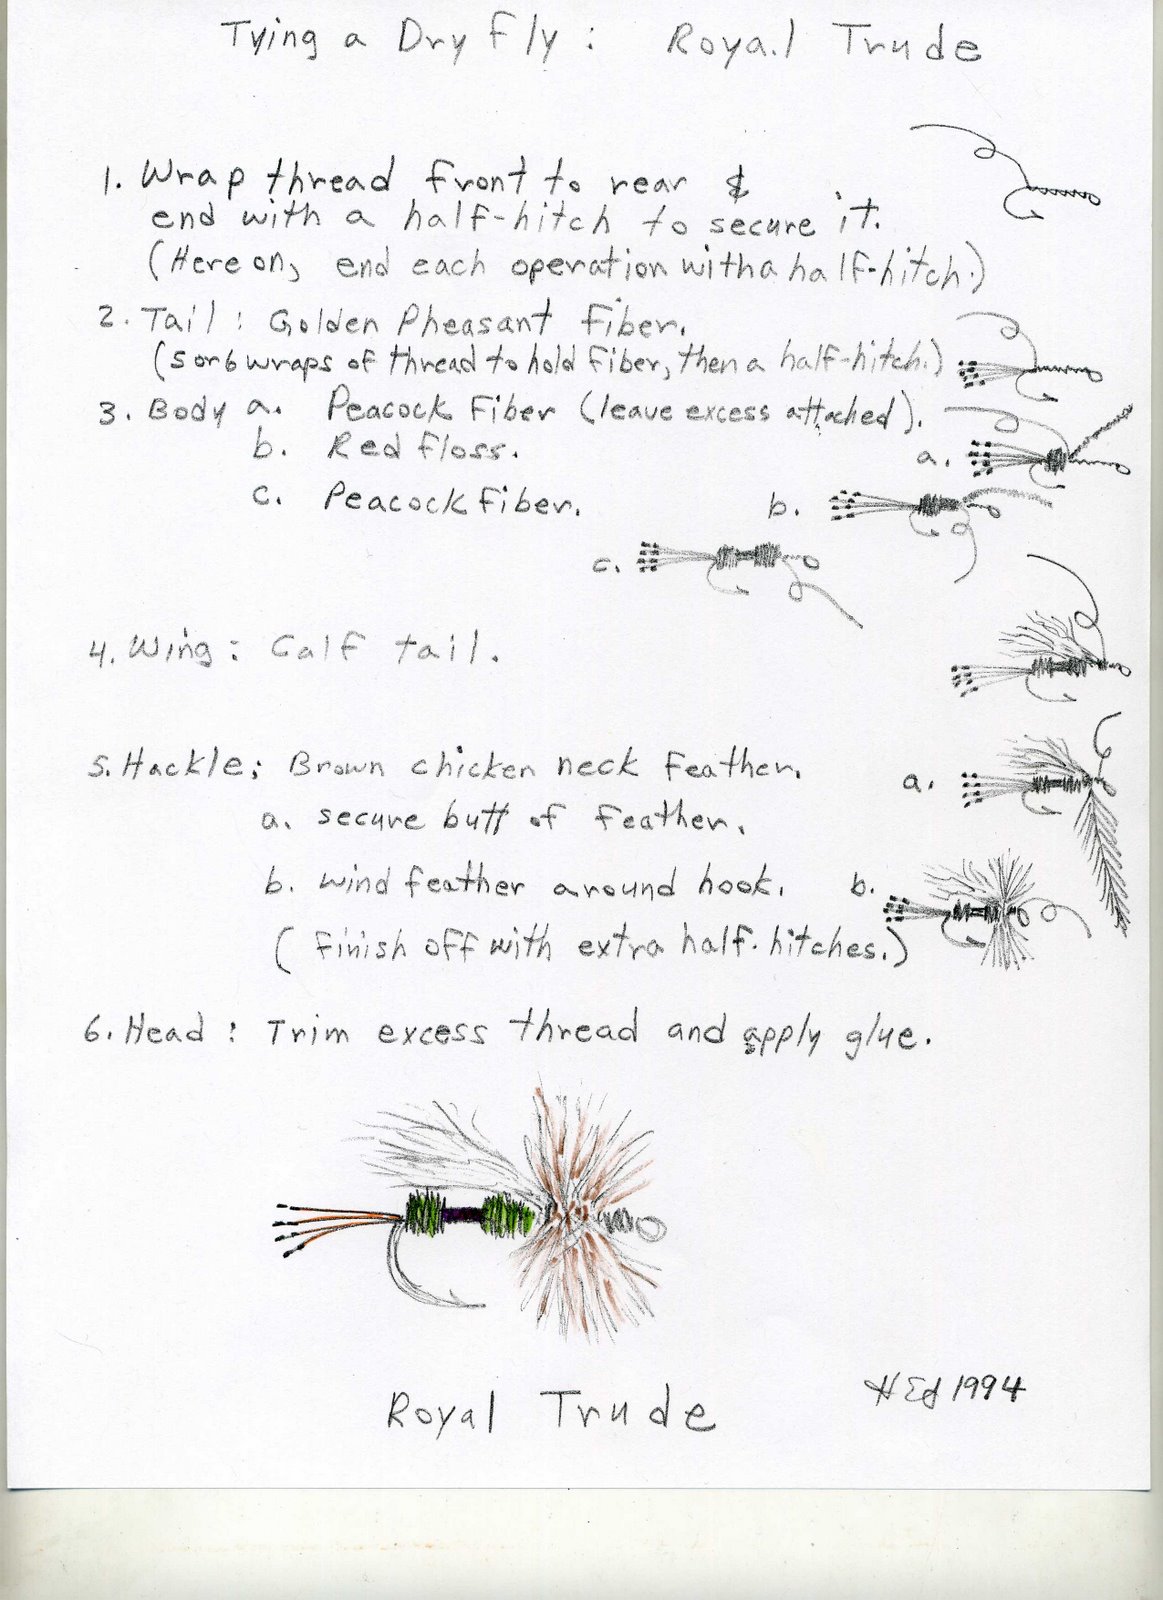 Tying a Dry Fly: Royal Trude
1. Wrap thread front to rear &
end with a half-hitch to secure it.
(Here on, end each operation with a half-hitch.)
2. Tail: Golden Pheasant Fiber.
(5 or 6 wraps of thread to hold fiber, then a half-hitch.)
3. Body a. Peacock Fiber (leave excess attached).
b. Red floss.
a.
c. Peacock fiber.
b.
c.
4. Wing: Calf tail.
5. Hackle: Brown chicken neck feather.
a.
a. secure butt of feather.
b. wind feather around hook.
b.
(finish off with extra half-hitches.)
6. Head: Trim excess thread and apply glue.
Royal Trude
1994